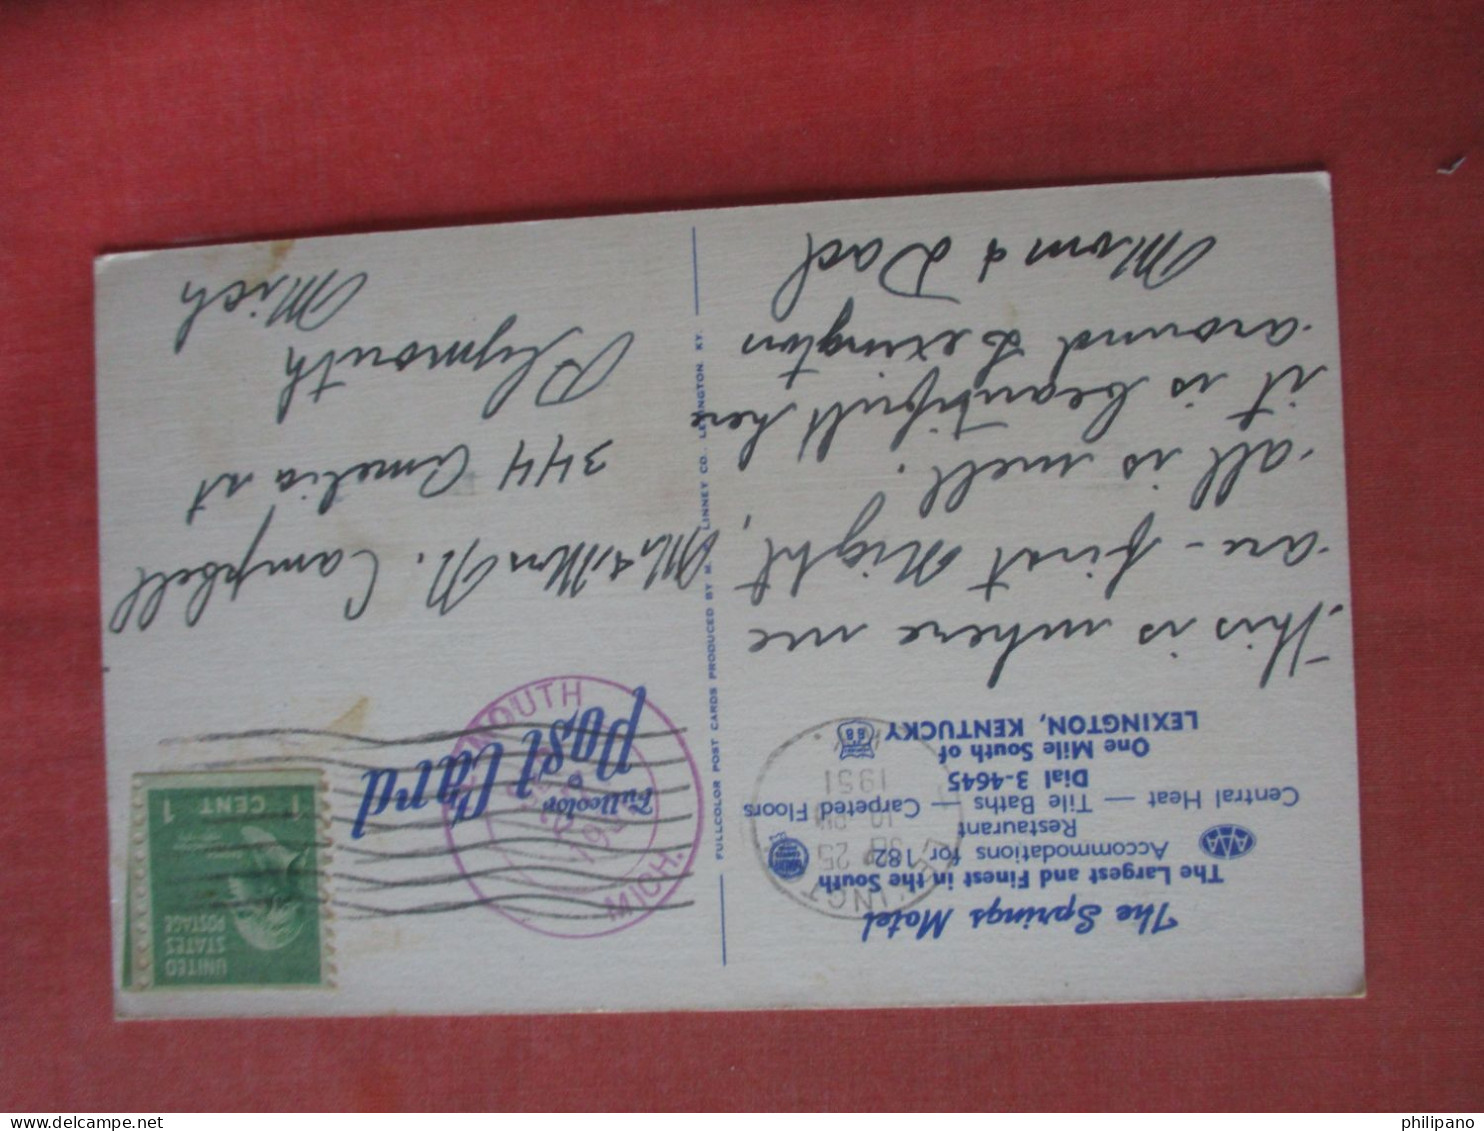 The Springs Motel
The Largest and Finest in the South
Accommodations for 182
Restaurant
Central Heat — Tile Baths — Carpeted Floors
Dial 3-4645
One Mile South of
LEXINGTON, KENTUCKY
AAA
SEP 25
10
1951
This is where we
are - first night,
all is well.
it is beautifull here
around Lexington
Mom & Dad
FULLCOLOR POST CARDS PRODUCED BY LINNEY CO., LEXINGTON, KY.
Fullcolor
Post Card
MICH.
UNITED
STATES
POSTAGE
1 CENT 1
Mr & Mrs N. Campbell
344 Amelia st
Plymouth
Mich
philipano